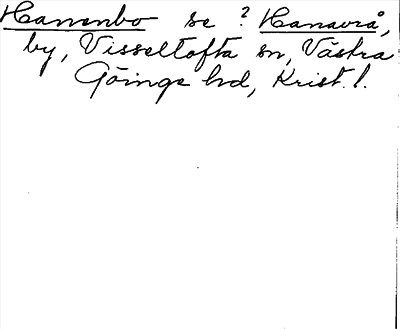 Hanenbo se ? Hanavrå,
by, Visseltofta sn, Västra
Göinge hd, Krist. l.